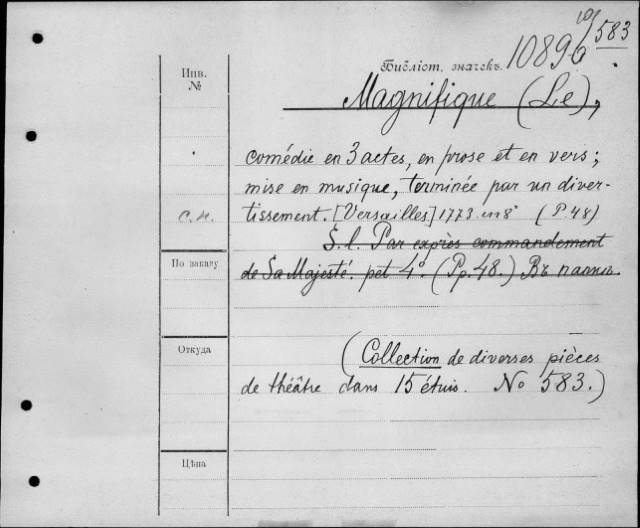 10896 101/583
Библіот. значекъ.
Инв. №
Magnifique (Le),
comédie en 3 actes, en prose et en vers;
mise en musique, terminée par un diver-
с.н. tissement. [Versailles] 1773. in 8° (P. 48)
S. l. Par exprès commandement
По заказу
de Sa Majesté. pet 4°. (Pp. 48.) Въ папкѣ.
Откуда
(Collection de diverses pièces
de théâtre dans 15 étuis. No 583.)
Цѣна